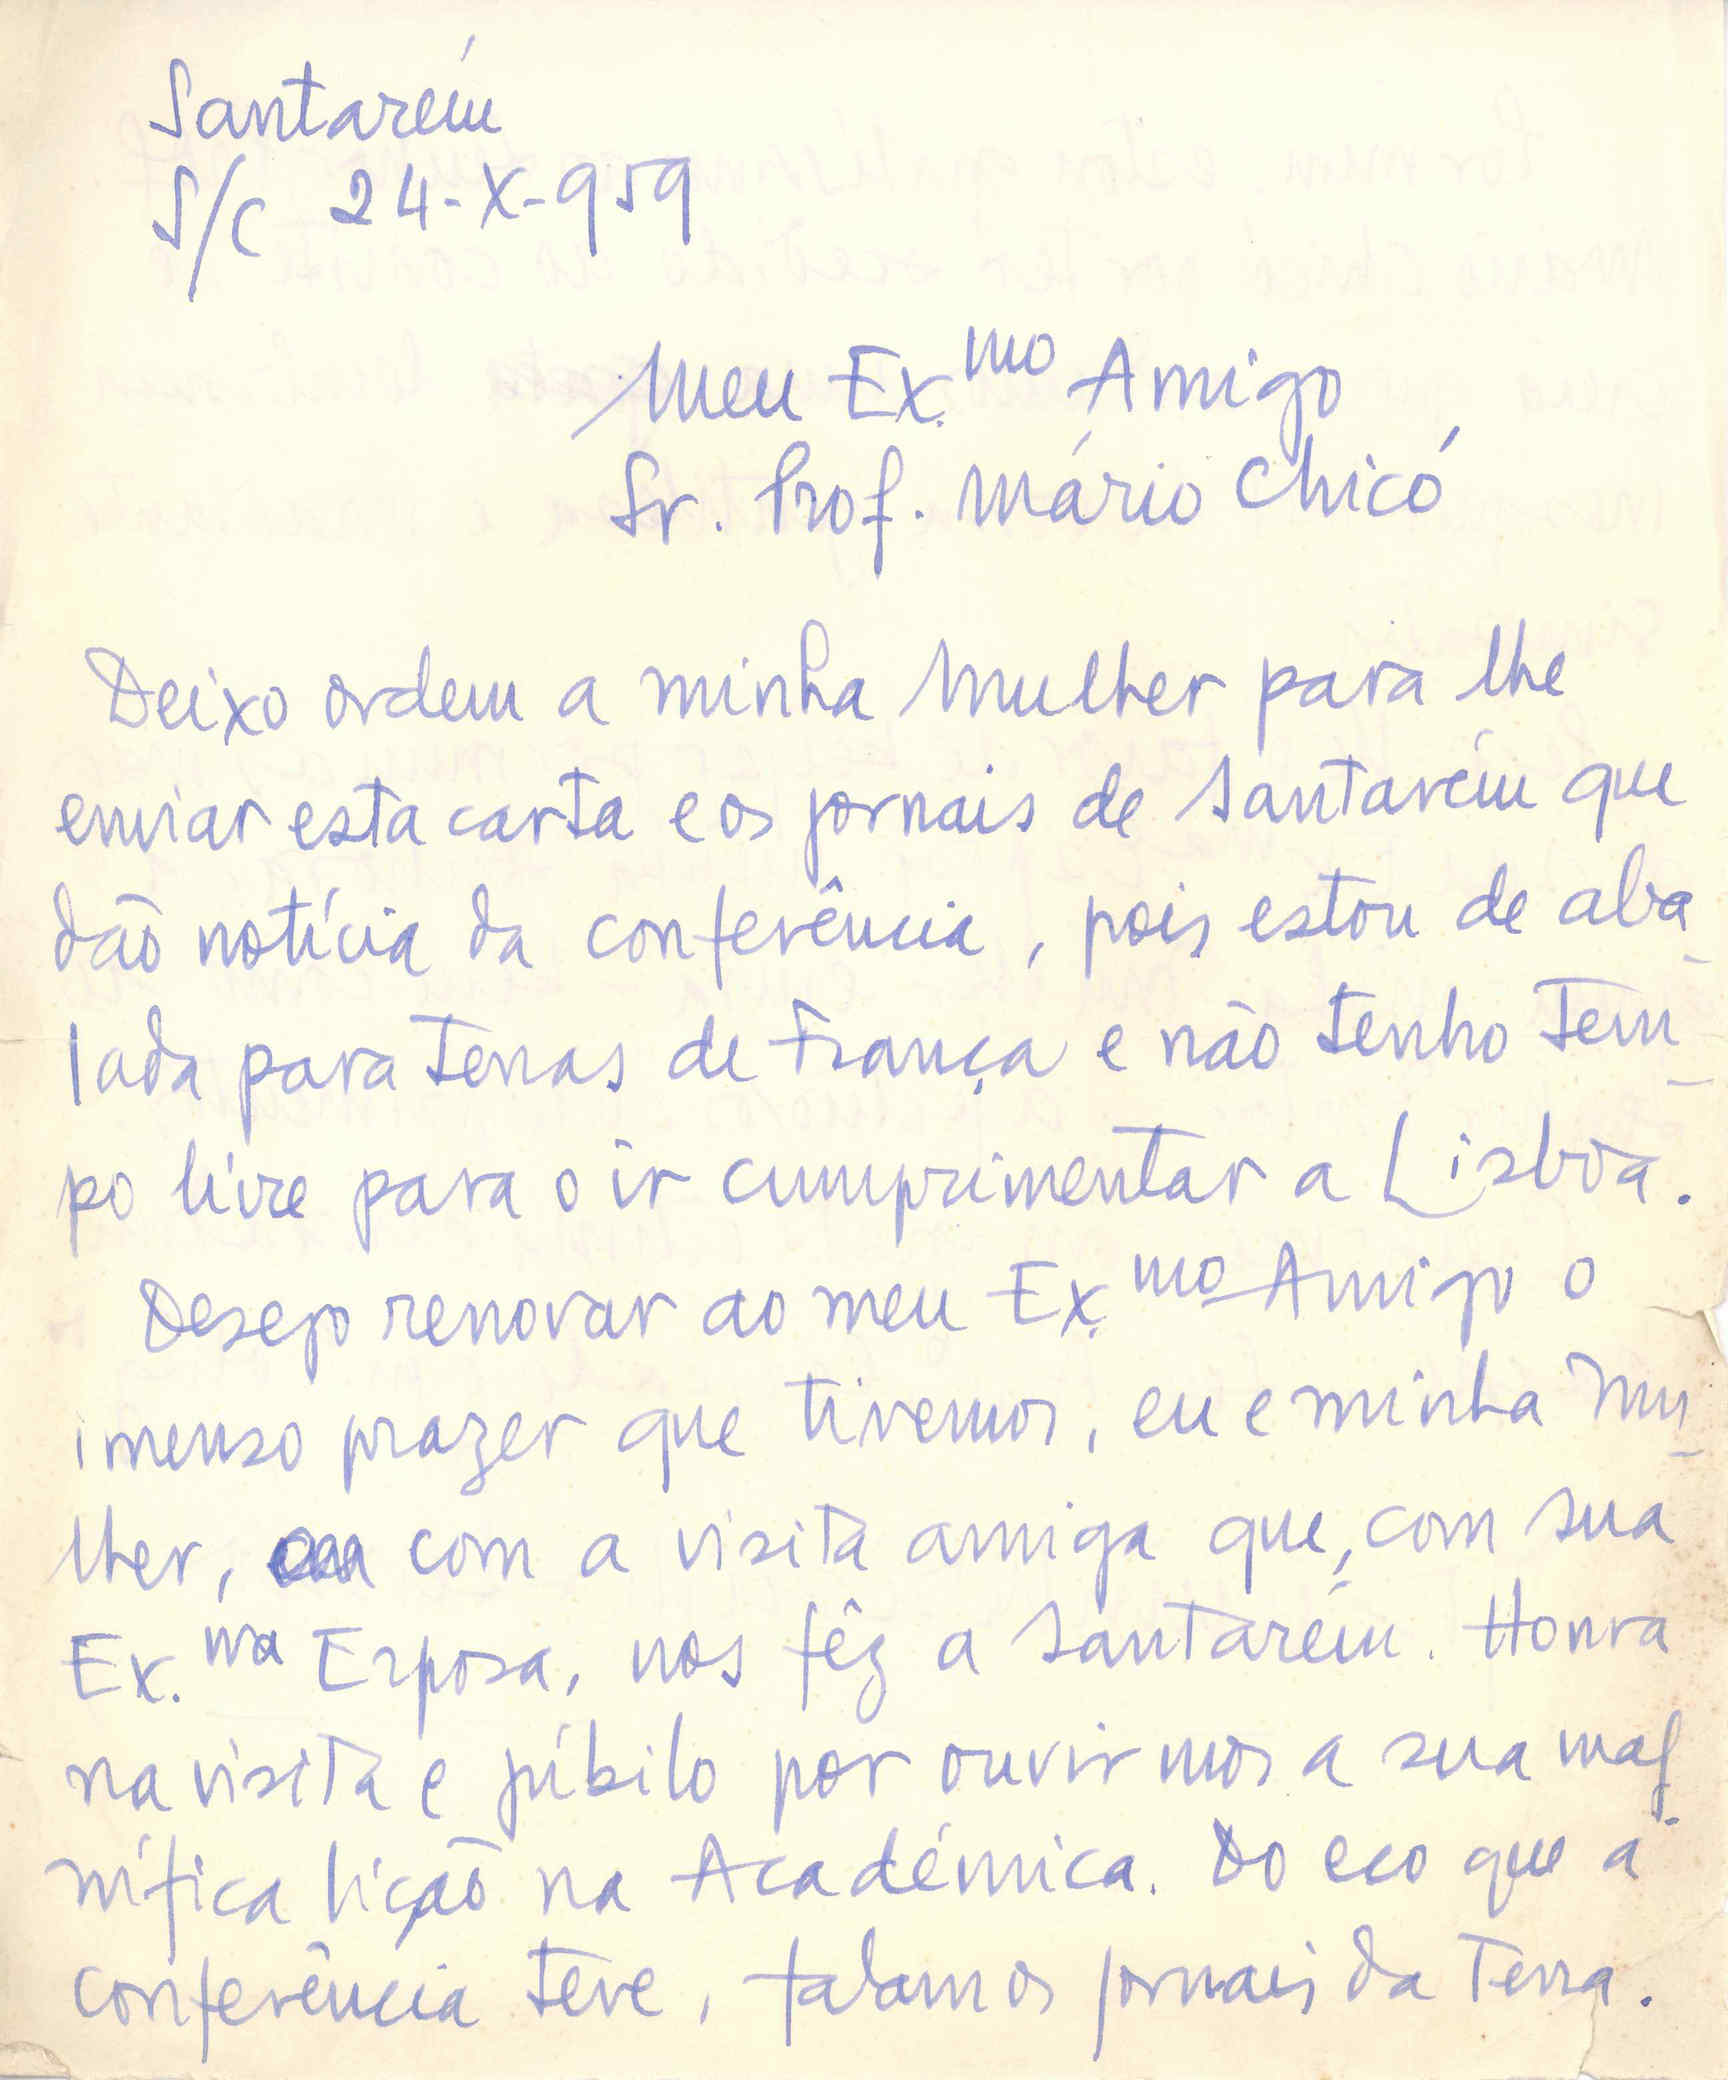 Santarém
S/C 24-X-959
Meu Ex.mo Amigo
Sr. Prof. Mário Chicó
Deixo ordem a minha Mulher para lhe
enviar esta carta e os jornais de Santarém que
dão notícia da conferência, pois estou de aba-
lada para terras de França e não tenho tem-
po livre para o ir cumprimentar a Lisboa.
Desejo renovar ao meu Ex.mo Amigo o
imenso prazer que tivemos, eu e minha Mu-
lher, com a visita amiga que, com sua
Ex.ma Esposa, nos fêz a Santarém. Honra
na visita e júbilo por ouvirmos a sua mag-
nífica lição na Académica. Do eco que a
conferência teve, falam os jornais da terra.